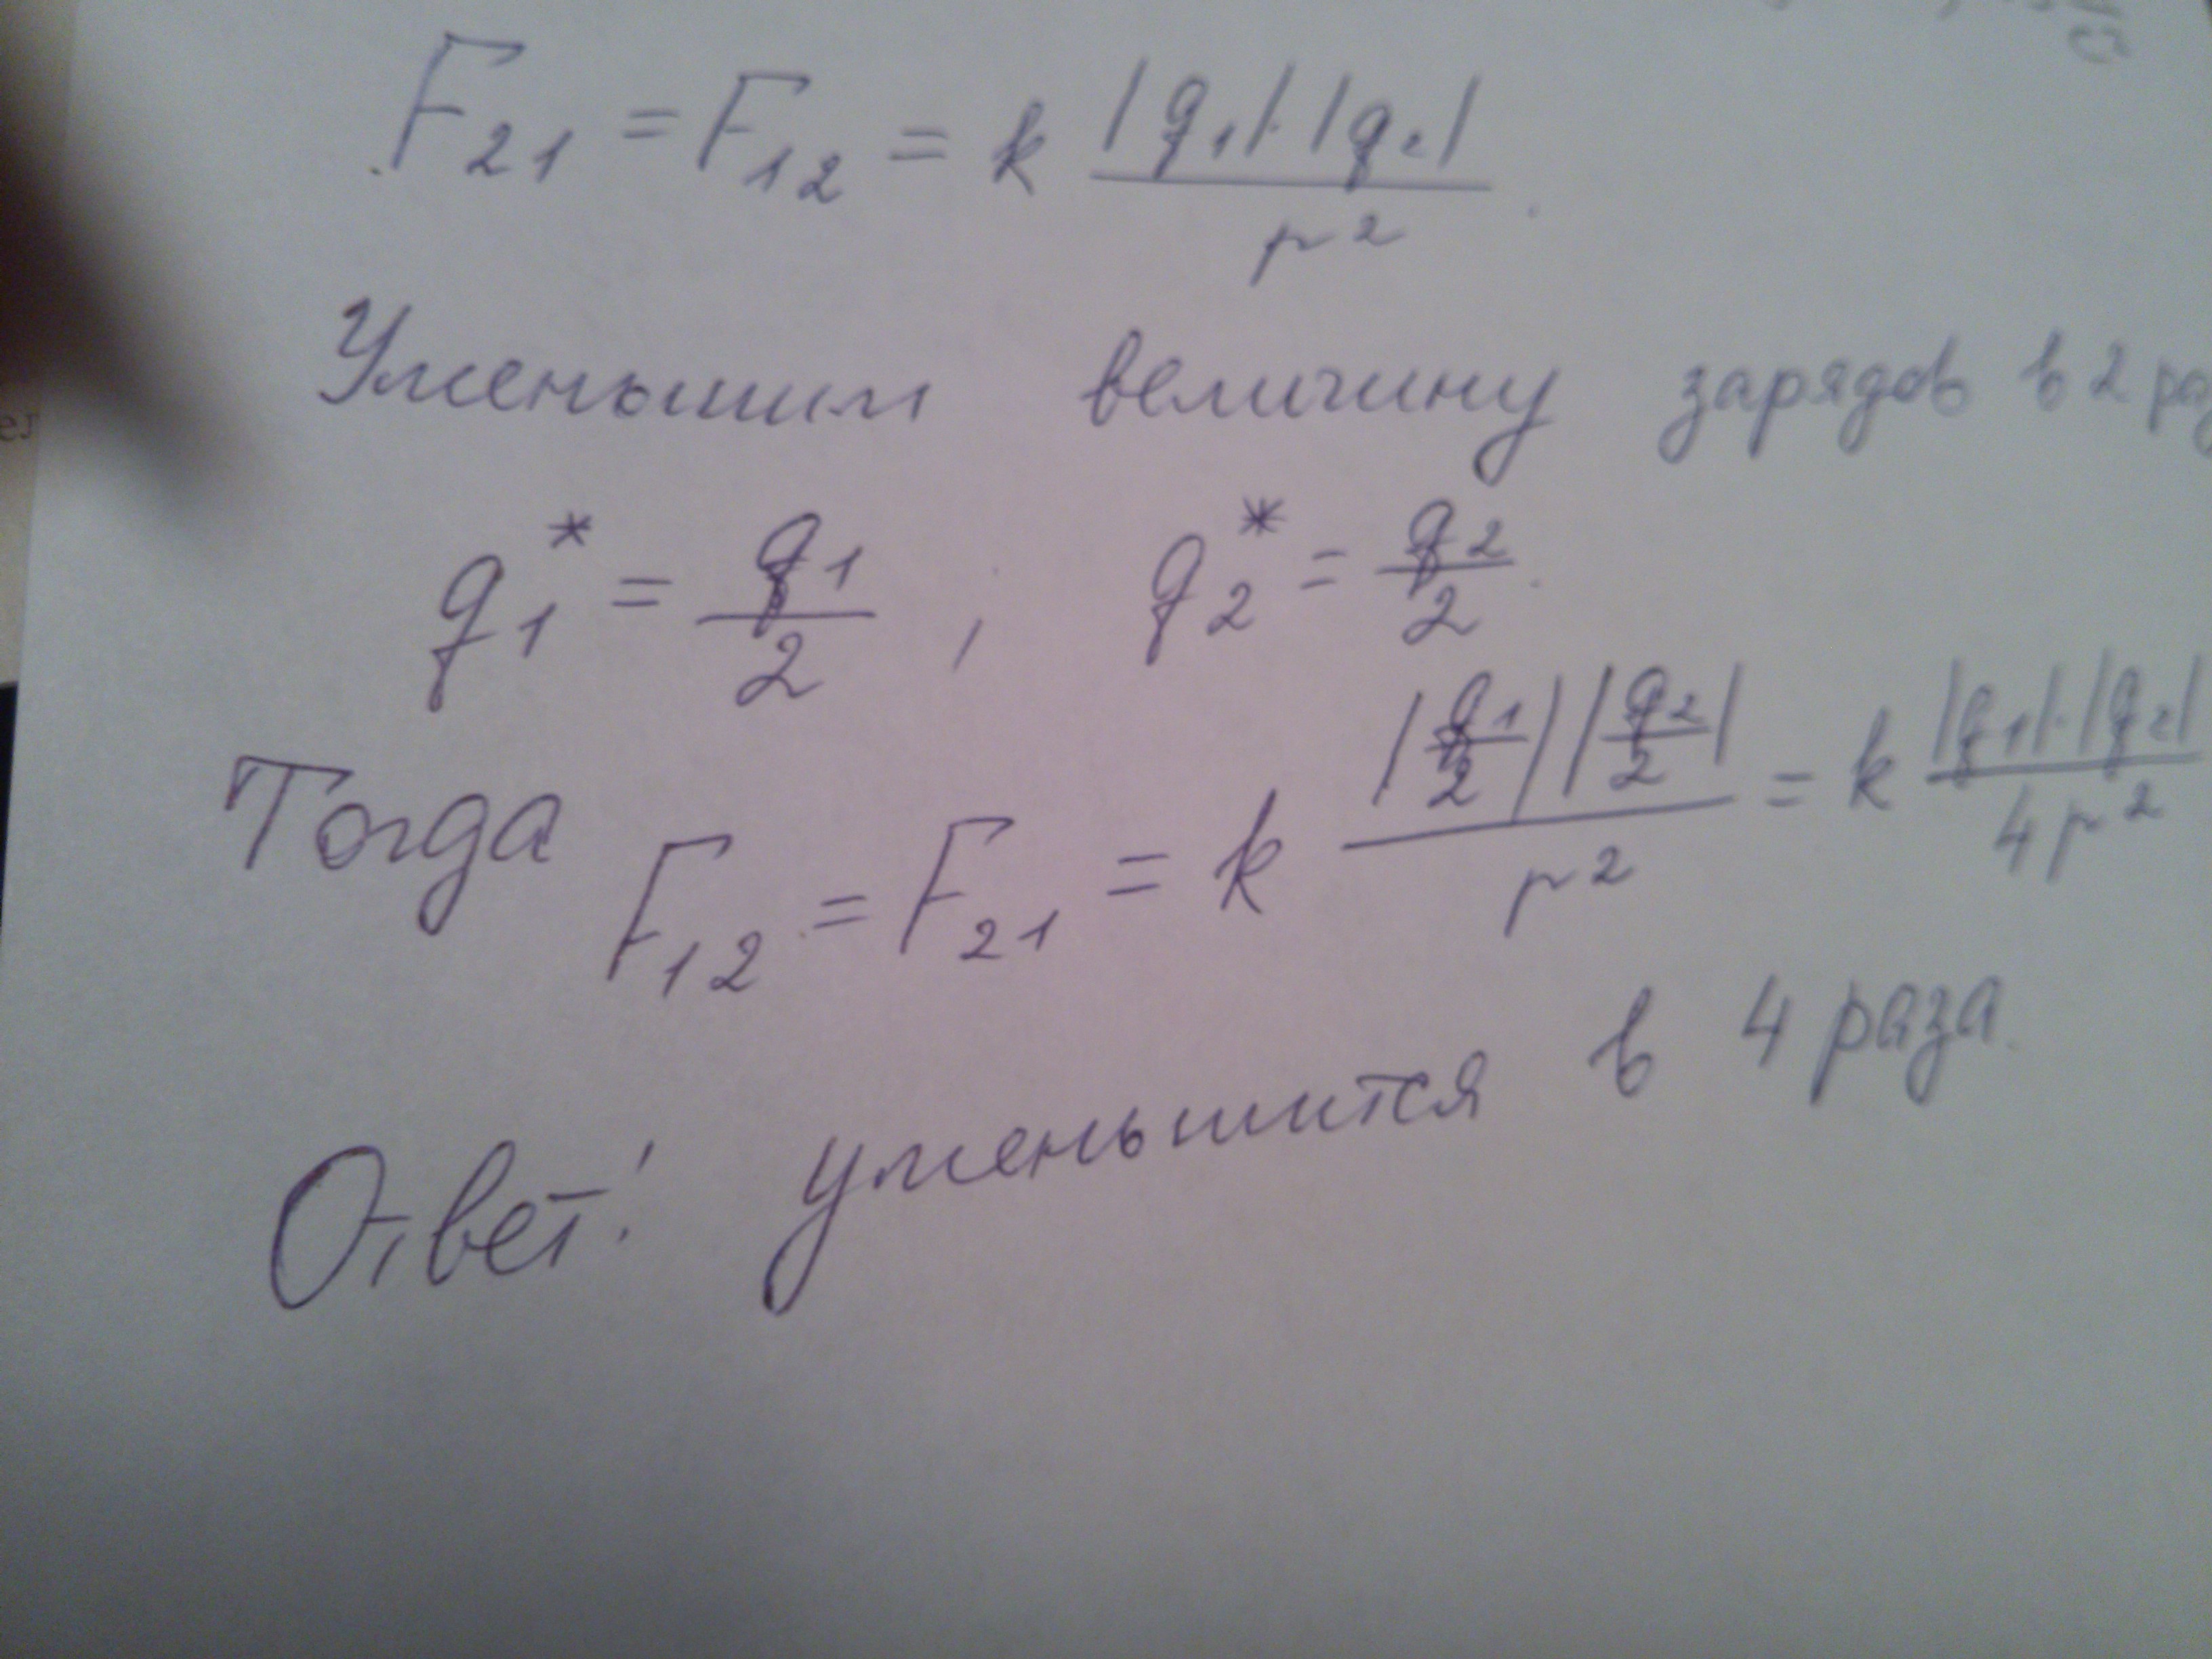 F₂₁ = F₁₂ = k |q₁|·|q₂| / r².
Уменьшим величину зарядов в 2 раз
q₁* = q₁/2 ; q₂* = q₂/2.
Тогда F₁₂ = F₂₁ = k |q₁/2||q₂/2| / r² = k |q₁|·|q₂| / 4r²
Ответ: уменьшится в 4 раза.